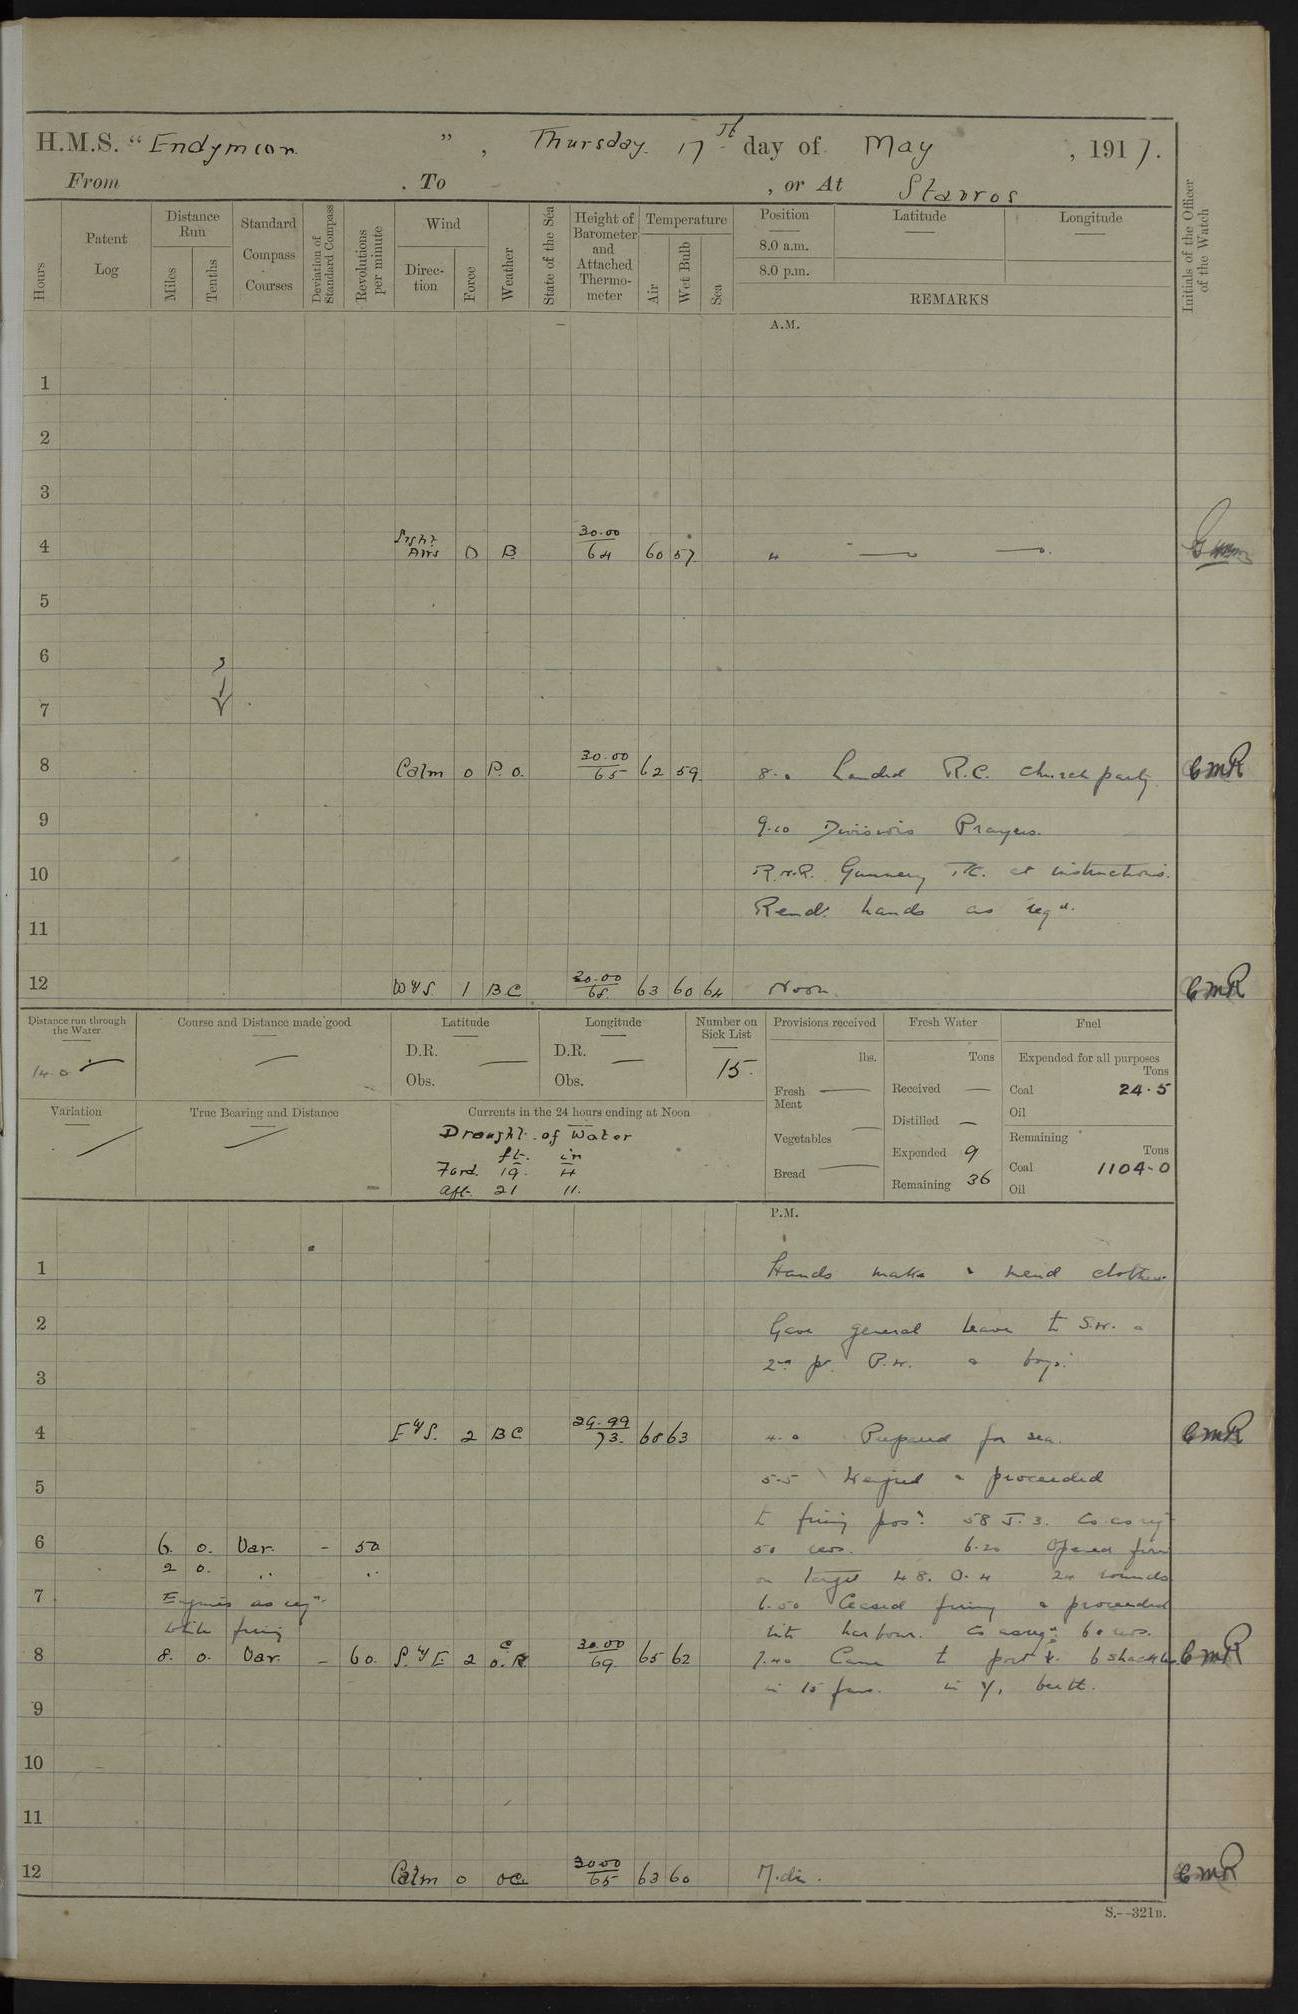 H.M.S. "Endymion", Thursday 17th day of May, 1917.
From . To , or At Stavros
Hours
Patent Log
Distance Run
Miles
Tenths
Standard Compass Courses
Deviation of Standard Compass
Revolutions per minute
Wind
Direction
Force
Weather
State of the Sea
Height of Barometer and Attached Thermometer
Temperature
Air
Wet Bulb
Sea
Position
8.0 a.m.
8.0 p.m.
Latitude
Longitude
REMARKS
Initials of the Officer of the Watch
A.M.
1
2
3
4 Light Airs 0 B 30.00 64 60 57 4
5
6
7
8 Calm 0 P.O. 30.00 65 62 59 8.0 Landed R.C. Church party CMR
9 9.10 Divisions Prayers.
10 R.N.R. Gunnery at instructions.
Remdr hands as reqd.
11
12 W by S. 1 BC 30.00 68 63 60 64 Noon. CMR
Distance run through the Water
14.0
Course and Distance made good
Latitude
D.R.
Obs.
Longitude
D.R.
Obs.
Number on Sick List
15.
Provisions received
lbs.
Fresh Meat
Vegetables
Bread
Fresh Water
Tons
Received
Distilled
Expended 9
Remaining 36
Fuel
Expended for all purposes
Tons
Coal 24.5
Oil
Remaining
Tons
Coal 1104.0
Oil
Variation
True Bearing and Distance
Currents in the 24 hours ending at Noon
Draught of Water
ft. in
Ford. 19. 4
Aft. 21 11.
P.M.
1 Hands make & mend clothes
2 Gave general leave to S.W. &
2nd pt. P.W. & boys.
3
4 E by S. 2 BC 29.99 73. 68 63 4.0 Prepared for sea. CMR
5 5.5 Weighed & proceeded
to firing posn. 58 J.3. Co as req
6 6. 0. Var. - 50 50 revs. 6.20 Opened fire
2 0. " " on target 48. O.4 24 rounds
7 Engines as reqd. 6.50 Ceased firing & proceeded
while firing into harbour. Co as reqd. 60 revs.
8 8. 0. Var. - 60. S by E 2 O.C.R 30.00 69 65 62 7.40 Came to port 6 shackles CMR
in 15 fms. in Y, berth.
9
10
11
12 Calm 0 OC 30.00 65 63 60 Mid. CMR
S.--321B.